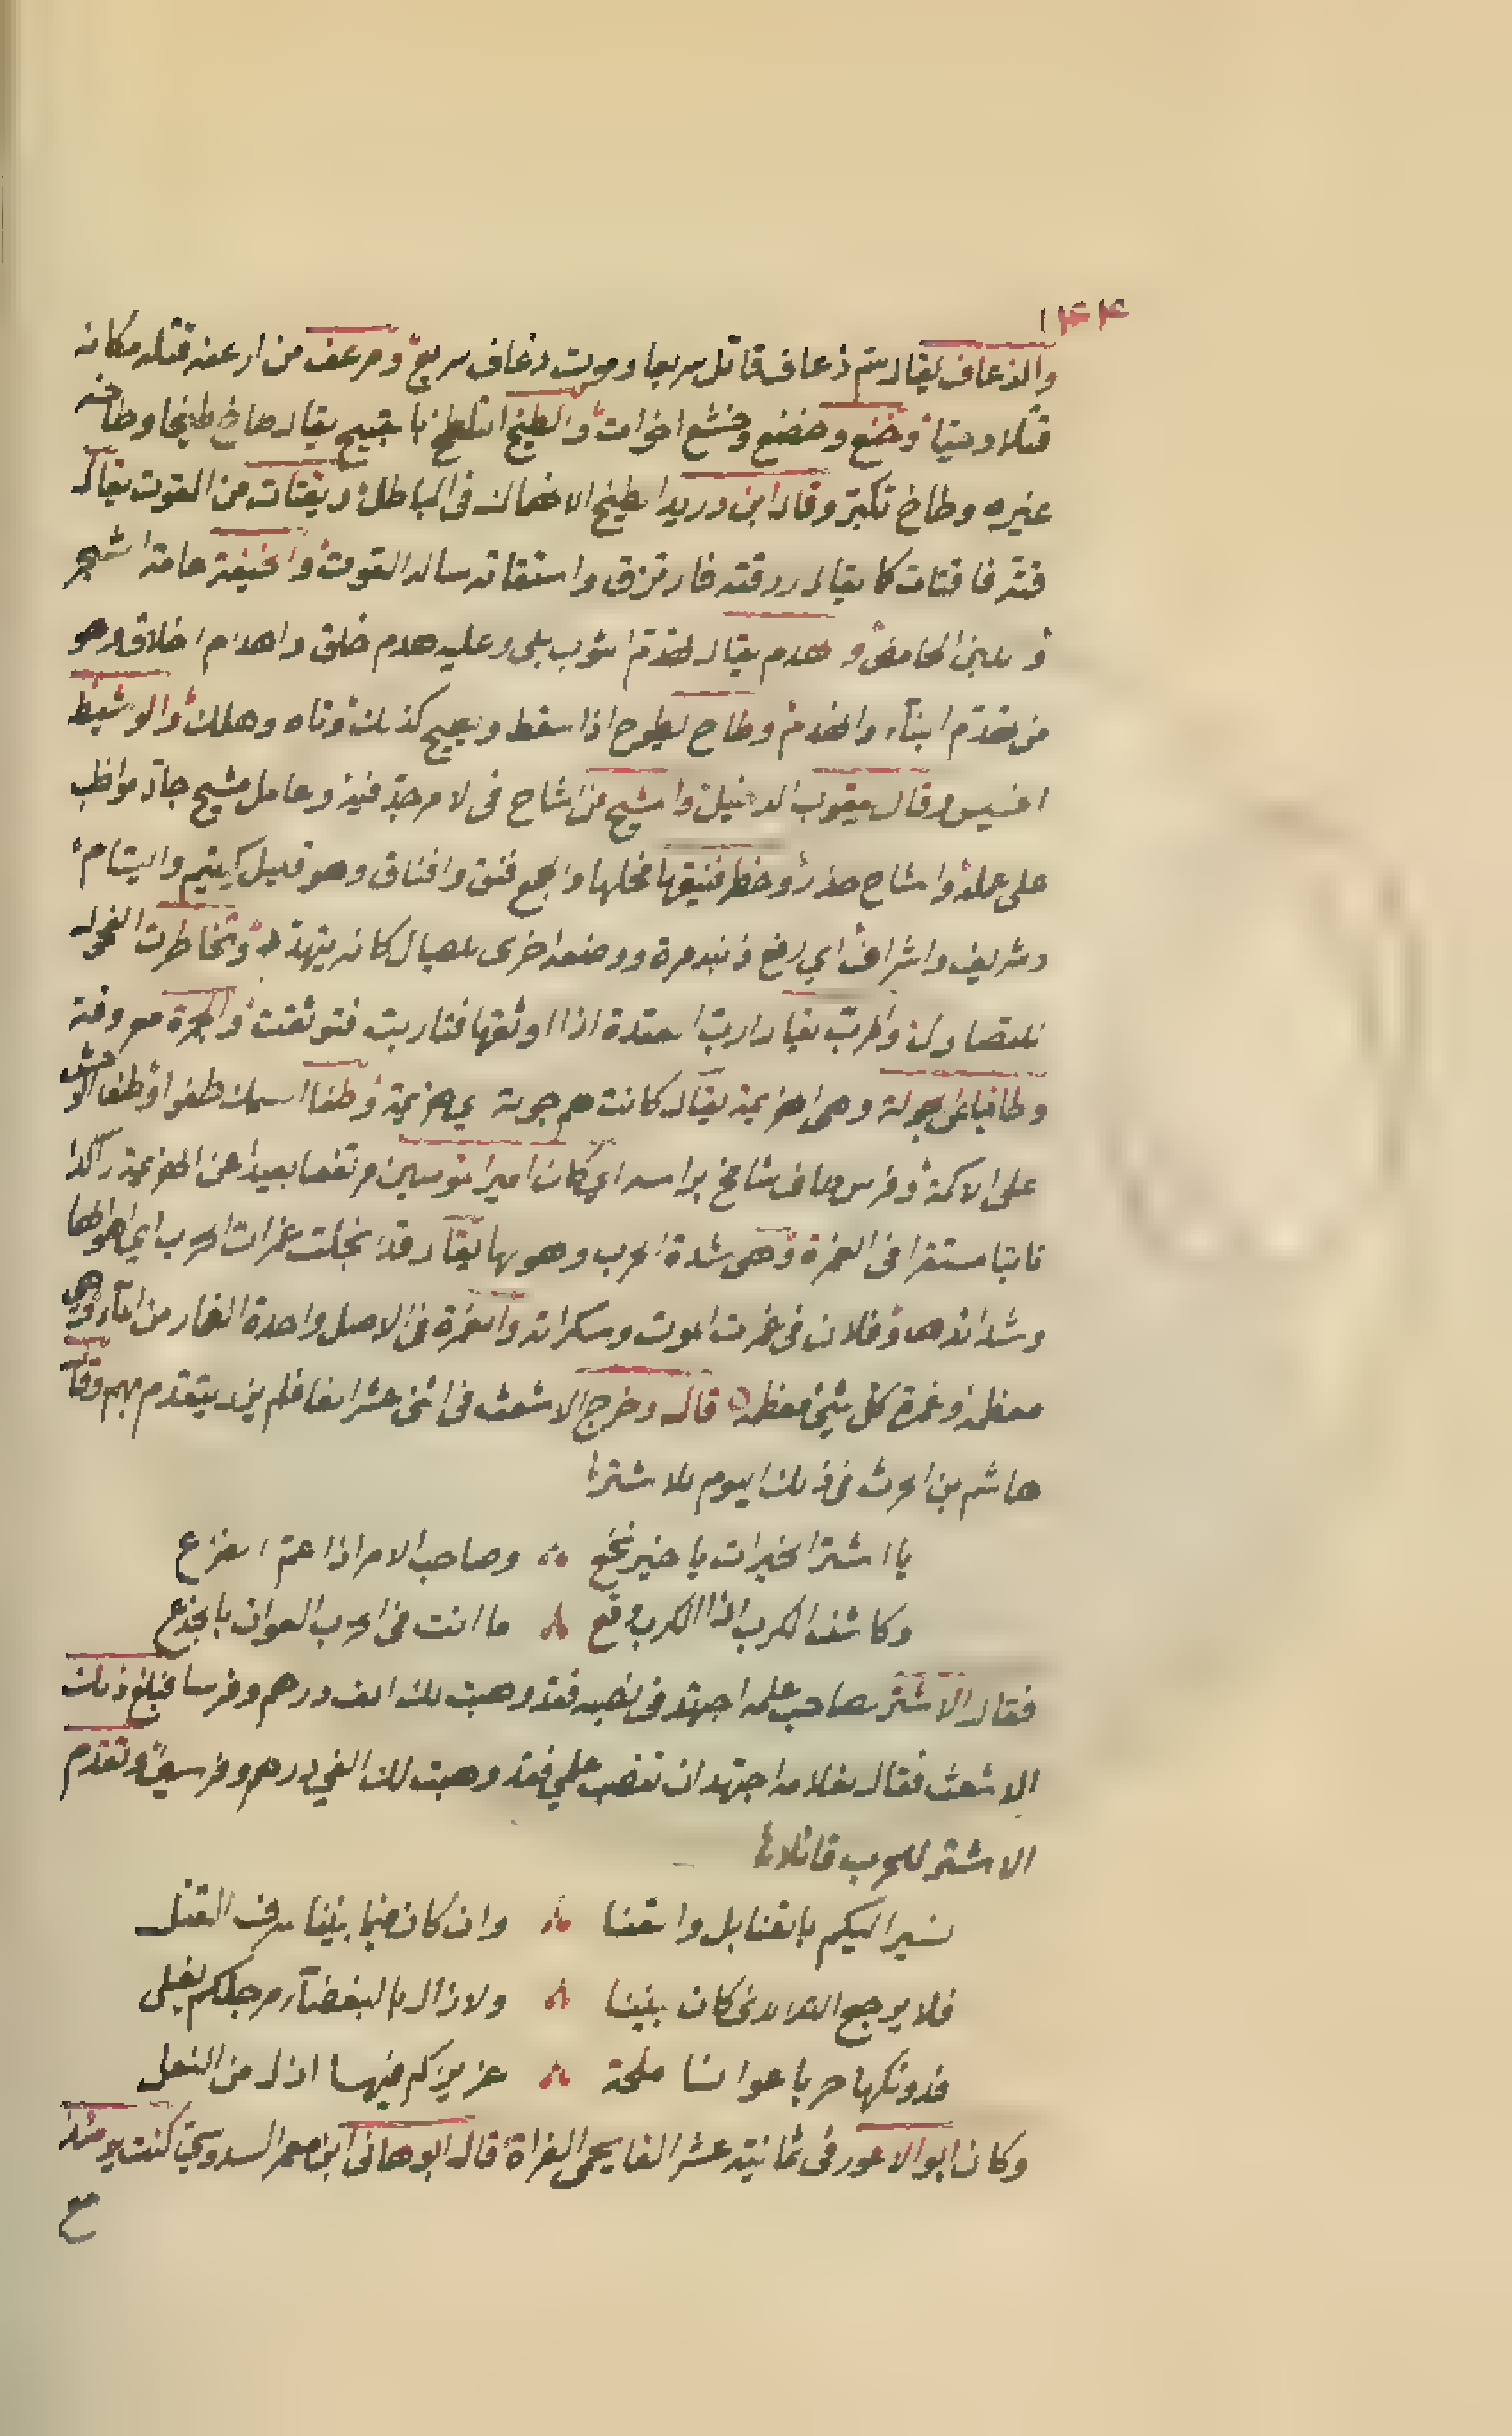 والذعاف يقال سم ذعاف قاتل سريعا وموت ذعاف سريع ومزعف من ازعفه قتله مكانه
قتلا وحيّا وخنع وخضع وخشع اخوات والطيخ التلطخ بالقبيح يقال طاخ طيخا وطاخه
غيره وطاخ تكبّر وقال ابن دريد الطيخ الانهماك فى الباطل ويقتات من القوت يقال
قتّه فاقتات كما يقال رزقته فارتزق واستقاته ساله القوت عامة الشجر
واللبن الحامض وهدم يقال لهدم الثوب بلى وعليه هدم خلق واهدام اخلاق وهو
من تهدّم البناء والهدم وطاح يطوح اذا سقط ويطيح كذلك وتاه وهلك والوشيظ
الخسيس وقال يعقوب الدخيل والمشيح من اشاح فى الامر جدّ فيه وعامل مشيح جادّ مواظب
على عمله واشاح حذر وخطر فنيقها فحلها والجمع فنق وافناق وهو قليل كيتيم وايتام
وشريف واشراف اي رفع ذنبه مرة ووضعه اخرى للصيال كانه يتهدّد وتخاطرت الفحول
للتصاول واربت يقال ارب العقدة اذا اوثقها فتاربت فتوثقت والجرة معروفة
وطافيا على الجولة وهى الهزيمة يقال كانت لهم جولة اي هزيمة وطفا السمك طفوا وطفا الوحش
على الاكمة وفرس طاف شامخ براسه اي كان امير المومنين مرتفعا بعيدا عن الهزيمة راكدا
ثابتا مستقرا فى الغمرة وهى شدة الحرب وهولها يقال قد انجلت غمرات الحرب اي اهوالها
وشدائدها وفلان فى غمرت الموت وسكراته والغمرة فى الاصل واحدة الغمار من الماء وهى
معظمه وغمرة كل شئ معظمه قال وخرج الاشعث فى اثنى عشر الفا فلم يزد يتقدم بهم وقال
هاشم بن الحرث فى ذلك اليوم للاشتر
يا اشتر الخيرات يا خير نخع ؞ وصاحب الامر اذا عمّ الفزع
وكاشف الكرب اذا الكرب وقع ؞ ما انت فى الحرب العوان بالجذع
فقال الاشتر لصاحب علمه اجتهد فى نصبه فقد وهبت لك الف درهم وفرسا فبلغ ذلك
الاشعث فقال لغلامه اجتهد ان تنصب علمي فقد وهبت لك الفي درهم وفرسين وتقدم
الاشتر للحرب قائلا
نسير اليكم بالقنابل والقنا ؞ وان كان فيما بيننا سرف القتل
فلا يرجع الله الذى كان بيننا ؞ ولا زال بالبغضاء مرجلكم يغلى
فدونكها حربا عوانا ملحة ؞ عزيزكم فيها اذل من النعل
وكان ابو الاعور فى ثمانية عشر الفا يحمى الفراة قال ابو هانى ابن معمر السدوسى كنت يومئذ
مع